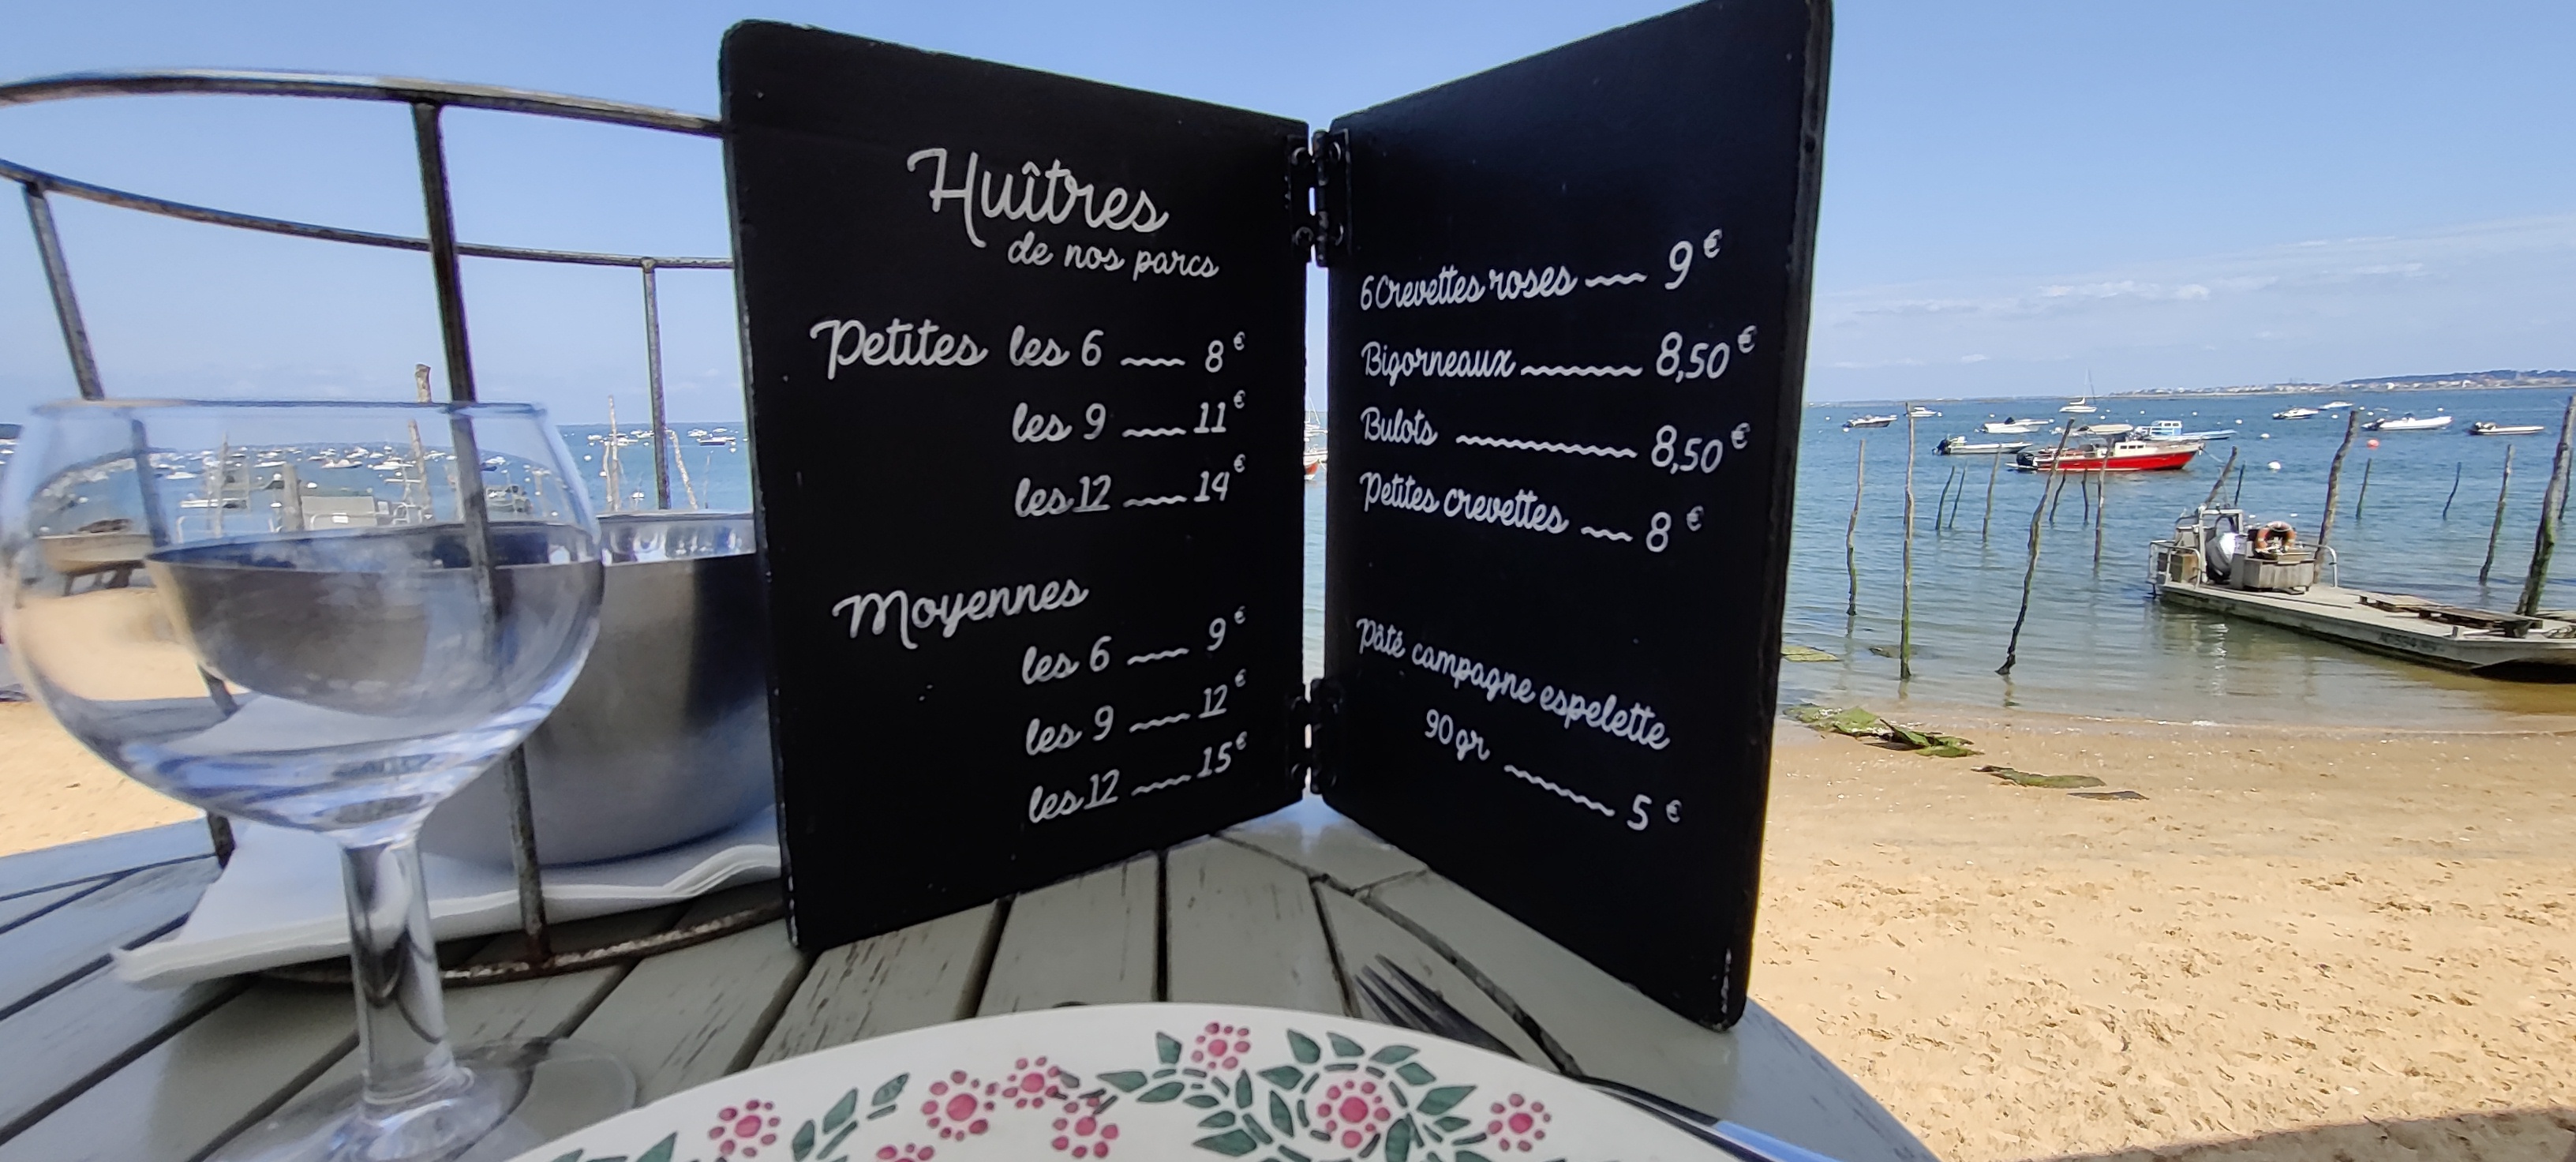 Huîtres
de nos parcs
Petites les 6 8€
les 9 11€
les 12 14€
Moyennes
les 6 9€
les 9 12€
les 12 15€
6 Crevettes roses 9€
Bigorneaux 8,50€
Bulots 8,50€
Petites crevettes 8€
Pâté campagne espelette
90gr 5€